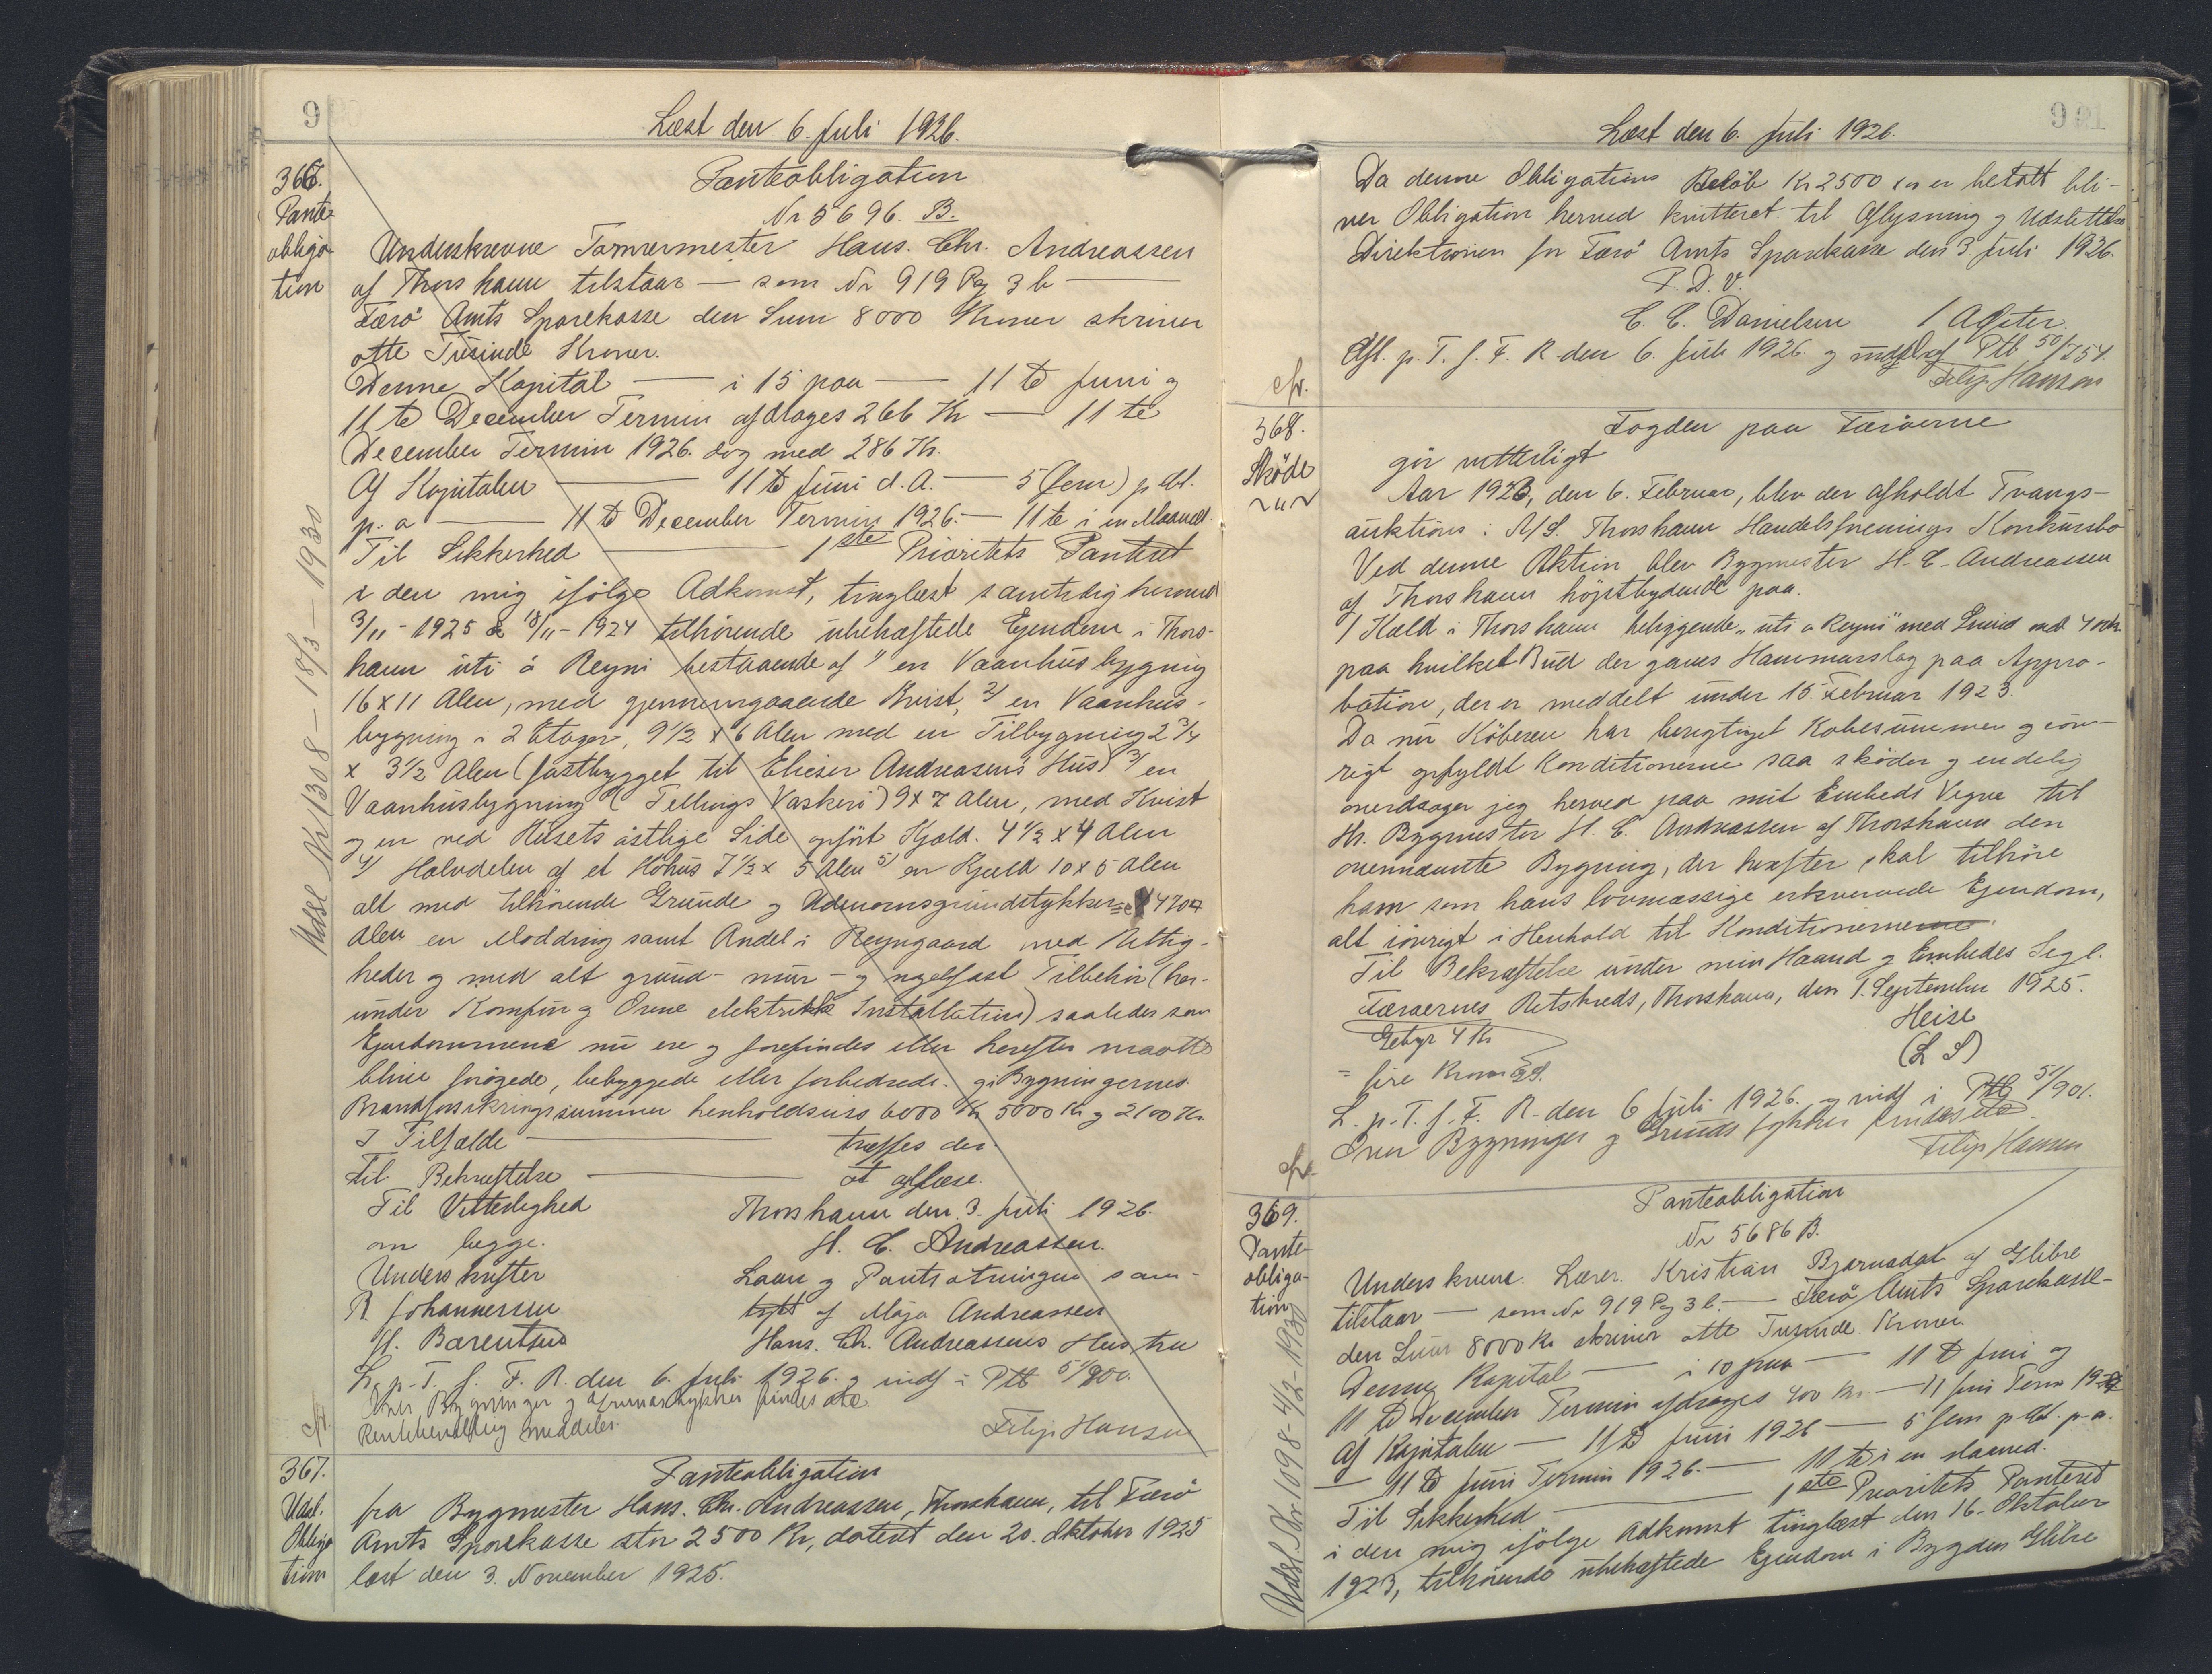 9
Læst den 6. Juli 1926.
366.
Pante
obliga
tion
Panteobligation
Nr 5696. B.
Underskrevne Tømrermester Hans. Chr. Andreassen
af Thorshavn tilstaar — som Nr 919 Pg 3 b —
Færö Amts Sparekasse den Sum 8000 Kroner skriver
otte Tusinde Kroner.
Denne Kapital — i 15 paa — 11 te Juni og
11 te December Termin afdrages 266 Kr — 11 te
December Termin 1926. dog med 286 Kr.
Af Kapitalen — 11 te Juni d. A. — 5 (fem) p Ct.
p. a — 11 te December Termin 1926. — 11 te i en Maaned.
Til Sikkerhed — 1ste Prioritets Panteret
i den mig ifölge Adkomst, tinglæst samtidig hermed
3/11 - 1925 & 18/11 - 1924 tilhörende ubehæftede Ejendom i Thors-
havn úti á Reyni bestaaende af 1/ en Vaanhusbygning
16 x 11 Alen, med gjennemgaaende Kvist, 2/ en Vaanhus-
bygning i 2 Etager, 9 1/2 x 6 Alen med en Tilbygning 2 3/4
x 3 1/2 Alen (fastbygget til Elieser Andreasens Hus) 3/ en
Vaanhusbygning (Tellings Vaskeri) 9 x 7 Alen, med Kvist
og en ved Husets östlige Side opfört Kjæld. 4 1/2 x 4 Alen
4/ Halvdelen af et Höhus 7 1/2 x 5 Alen 5/ en Kjæld 10 x 5 Alen
alt med tilhörende Grunde og Udenomsgrundstykker 470
Alen en Modding samt Andel i Reyngaard med Rettig-
heder og med alt grund- mur- og nagelfast Tilbehör (her-
under Komfur og Ovne elektriske Installation) saaledes som
Ejendommene nu ere og forefindes eller herefter maatte
blive forögede, bebyggede eller forbedrede. gi Bygningernes
Brandforsikringssummer henholdsvis 6000 Kr 5000 Kr og 2100 Kr.
I Tilfælde — træffes der.
Til Bekræftelse — at aflæse.
Til Vitterlighed Thorshavn den 3. Juli 1926.
om begge. H. C. Andreassen.
Underskrifter Laan og Pantsætningen sam-
R. Johannesen tykt af Maja Andreassen
H. Barentsen Hans. Chr. Andreassens Hustru
L. p. T. f. F. R. den 6. Juli 1926. og indf i Ptb 51/900.
Over Bygninger og Grundstykker findes
meddeles. Filip Hansen
Udsl. Nr 1308 - 18/3 - 1930
367.
Udsl.
Obliga
tion
Panteobligation
fra Bygmester Hans. Chr. Andreassen, Thorshavn, til Færö
Amts Sparekasse stor 2500 Kr, dateret den 20. Oktober 1925
læst den 3. November 1925.
Læst den 6. Juli 1926.
Da denne Obligations Belöb Kr 2500 er betalt bli-
ver Obligation herved kvitteret til Aflysning og Udslettelse
Direktionen for Færö Amts Sparekasse den 3 Juli 1926.
P. D. V.
C. C. Danielsen / Agster.
Afl. p. T. f. F. R. den 6. Juli 1926. og Ptb 50/754.
Filip Hansen
368.
Sköde
Fogden paa Færöerne
gör vitterligt
Aar 1923, den 6. Februar, blev der afholdt Tvangs-
auktion i A/S. Thorshavn Handelsforenings Konkursbo
Ved denne Aktion blev Bygmester H. C. Andreassen
af Thorshavn höjstbydende paa.
1 Kæld i Thorshavn bebyggende "úti á Reyni" med Grund
paa hvilket Bud der gaves Hammarslag paa Appro-
bation, der er meddelt under 15. Februar 1923.
Da nu Köberen har berigtiget Köbesummen og iöv-
rigt opfyldt Konditionerne saa sköder og endelig
overdrager jeg herved paa mit Embeds Vegne til
Hr. Bygmester H. C. Andreassen af Thorshavn den
ovennævnte Bygning, der herefter skal tilhöre
ham som hans lovmæssige erhvervede Ejendom,
alt iövrigt i Henhold til Konditionerne
Til Bekræftelse under min Haand og Embedes Segl.
Færöernes Retskreds, Thorshavn, den 1. September 1925.
Gebyr 4 Kr Heise
= fire Kroner (L S)
L. p. T. f. F. R. den 6 Juli 1926. og indf i Ptb 51/901.
Over Bygninger og Grundstykker findes
Filip Hansen
369.
Pante-
obliga-
tion
Panteobligation
Nr 5686 B.
Underskrevne. Lærer. Kristian Bjarnadal af Glibre
tilstaar — som Nr 919 Pg 3 b. — Færö Amts Sparekasse-
den Sum 8000 Kr skriver otte Tusinde Kroner.
Denne Kapital — i 10 paa — 11 te Juni og
11 te December Termin afdrages 400 Kr. — 11 Juni Term
Af Kapitalen — 11 te Juni 1926 — 5 fem p Ct. p. a.
— 11 te Juni Termin 1926. — 11 te i en Maaned.
Til Sikkerhed — 1ste Prioritets Panteret
i den mig ifölge Adkomst tinglæst den 16. Oktober
1923, tilhörende ubehæftede Ejendom i Bygden Glibre
Udsl. Nr 1098 - 4/2 - 1930